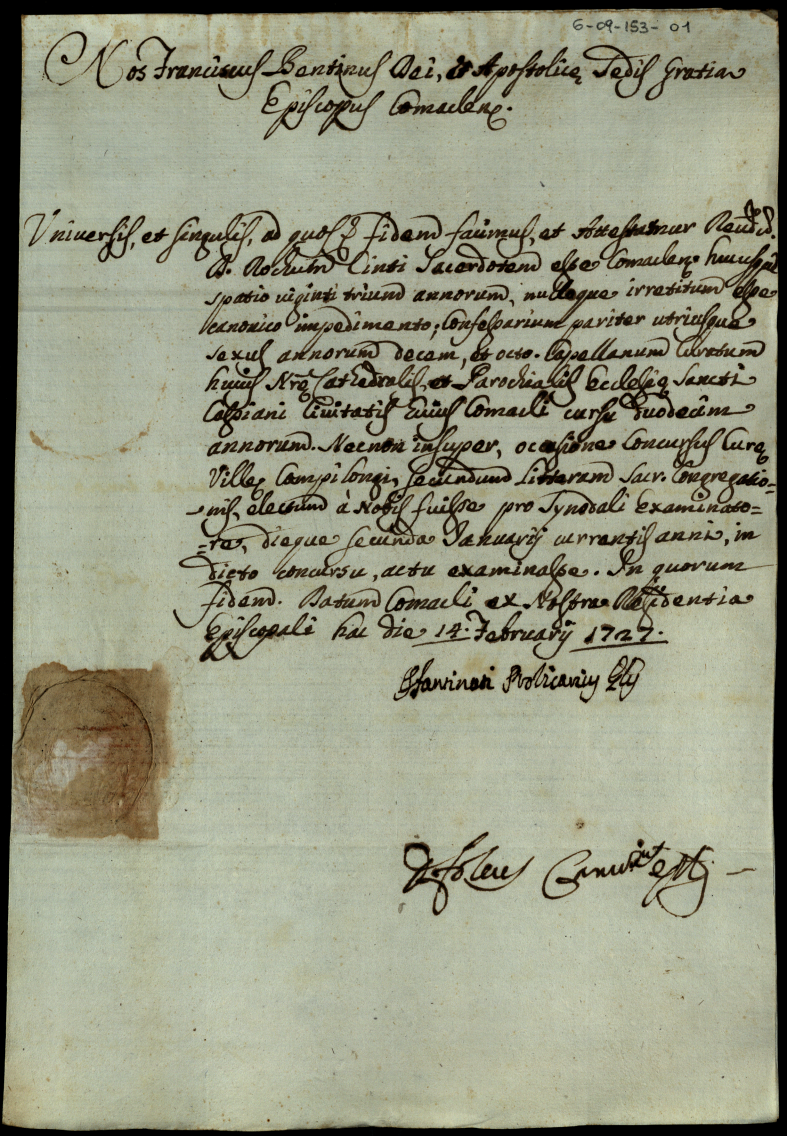 6-09-153-01
Nos Franciscus Bentinus Dei, et Apostolicę Sedis Gratia
Episcopus Comaclen.
Universis, et singulis, ad quos fidem facimus, et Attestamur Reud.
D. Rochum Cinti Sacerdotem esse Comaclen. huiusque
spatio viginti trium annorum, nulloque irretitum esse
canonico impedimento; Confessarium pariter utriusque
sexus annorum decem, et octo. Capellanum Curatum
huius Nrę Cathedralis, et Parochialis Ecclesię Sancti
Cassiani Civitatis huius Comacli cursu duodecim
annorum. Necnon insuper, occasione Concursus Curę
Villę Campi longi, secundum Litteram Sacr. Congregatio=
-nis, electum à Nobis fuisse pro Synodali Examinato=
=re, dieque secunda Januarij currentis anni, in
dicto concursu, actu examinasse. In quorum
fidem. Datum Comacli ex Nostra Residentia
Episcopali hac die 14. February 1727.